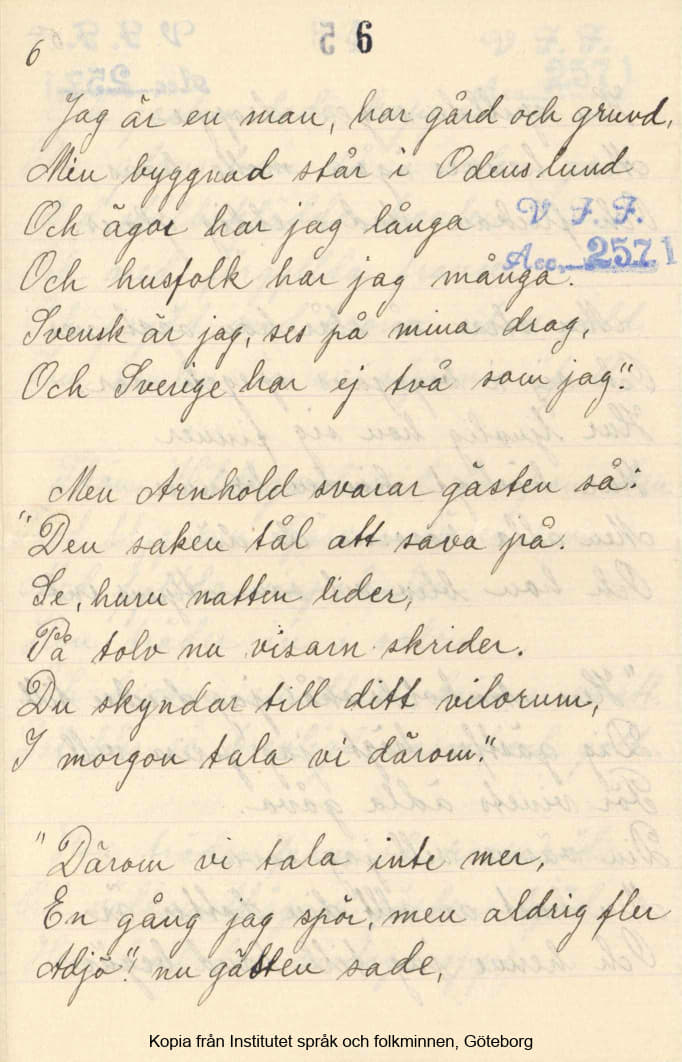 6
6
Jag är en man, har gård och grund,
Min byggnad står i Odens lund
Och ägor har jag långa
V. F. F.
Acc. 2571
Och husfolk har jag många.
Svensk är jag, ses på mina drag,
Och Sverige har ej två som jag".
Men Arnhold svarar gästen så:
"Den saken tål att sova på.
Se, huru natten lider,
På tolv nu visarn skrider.
Du skyndar till ditt vilorum,
I morgon tala vi därom."
"Därom vi tala inte mer,
En gång jag spör, men aldrig fler
Adjö"! nu gästen sade,
Kopia från Institutet språk och folkminnen, Göteborg